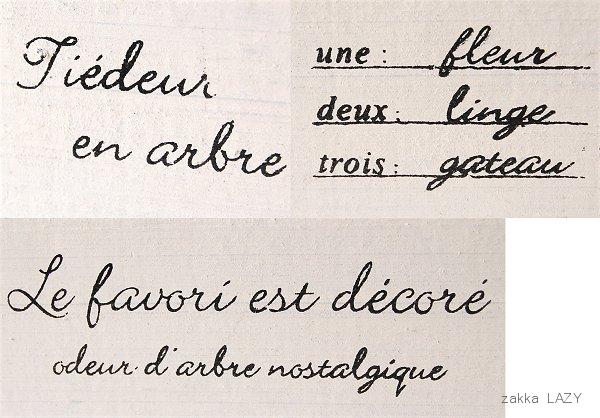 Tiédeur
en arbre
une : fleur
deux : linge
trois : gateau
Le favori est décoré
odeur d'arbre nostalgique
zakka LAZY